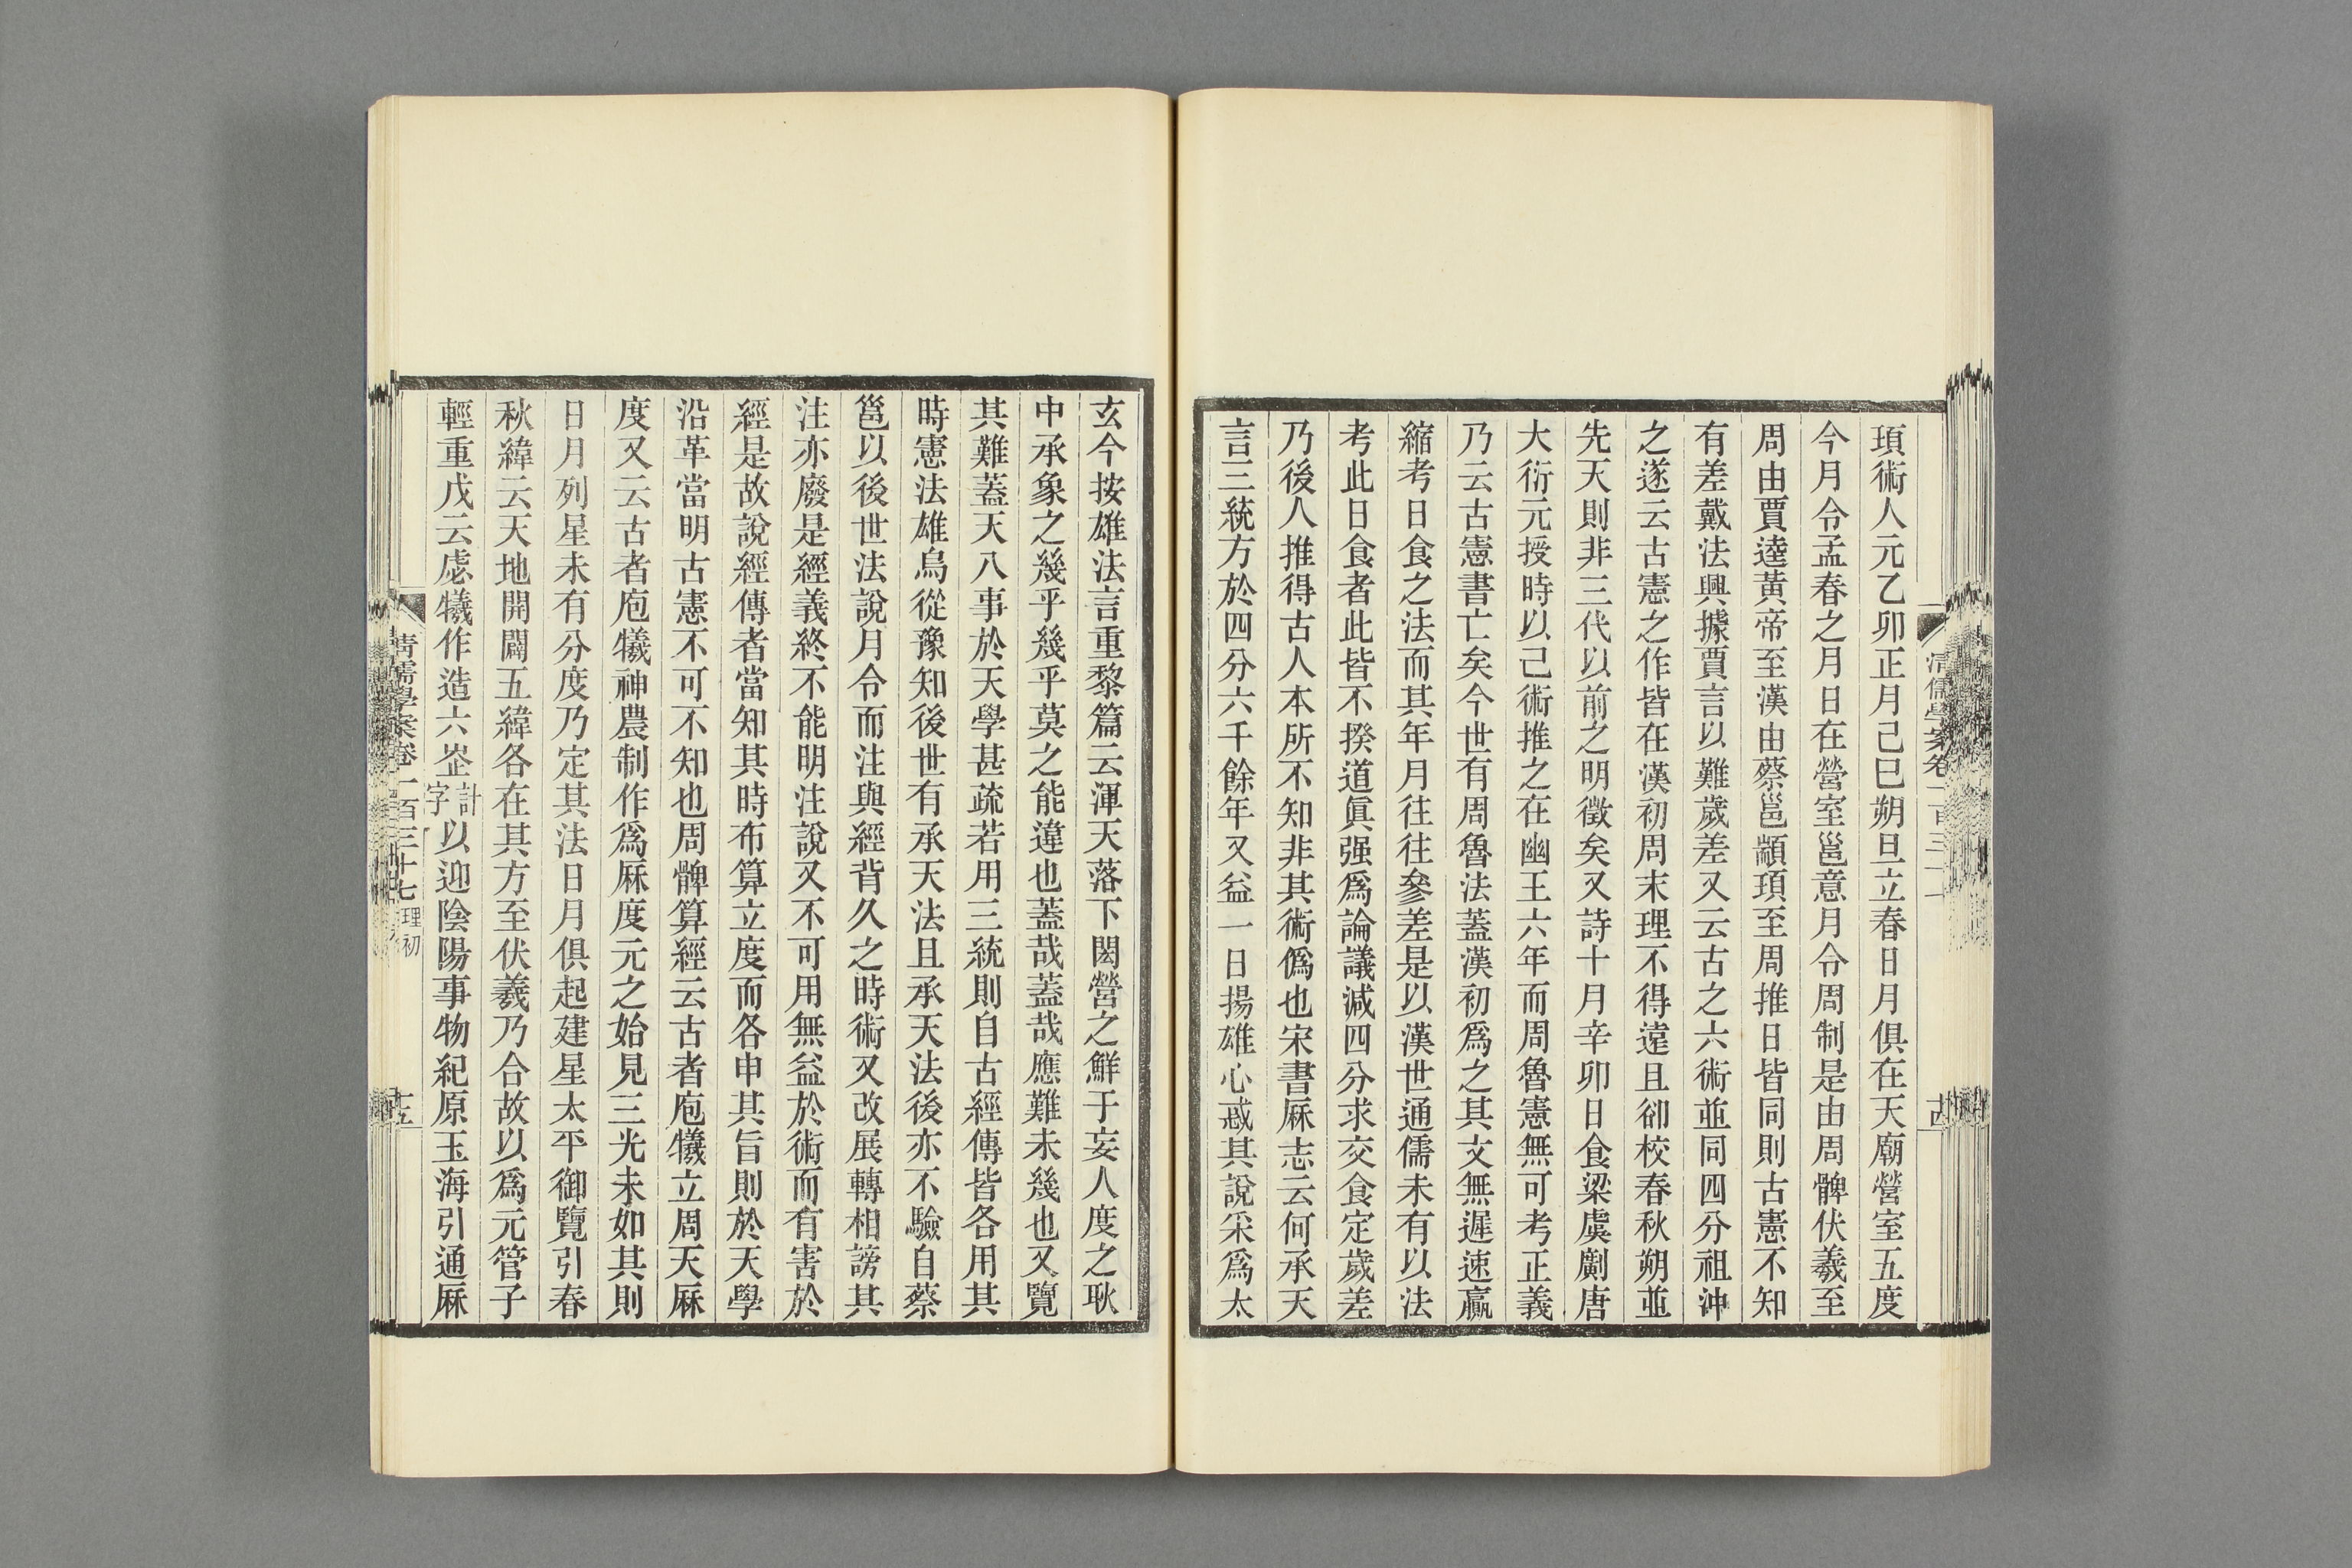 頊術人元乙卯正月己巳朔旦立春日月俱在天廟營室五度
今月令孟春之月日在營室邕意月令周制是由周髀伏羲至
周由賈逵黃帝至漢由蔡邕顓頊至周推日皆同則古憲不知
有差戴法興據賈言以難歲差又云古之六術並同四分祖沖
之遂云古憲之作皆在漢初周末理不得遠且卻校春秋朔並
先天則非三代以前之明徵矣又詩十月辛卯日食梁虞劇唐
大衍元授時以己術推之在幽王六年而周魯憲無可考正義
乃云古憲書亡矣今世有周魯法蓋漢初爲之其文無遲速贏
縮考日食之法而其年月往往參差是以漢世通儒未有以法
考此日食者此皆不揆道眞强爲論議減四分求交食定歲差
乃後人推得古人本所不知非其術僞也宋書厤志云何承天
言三統方於四分六千餘年又益一日揚雄心惑其說采爲太
清儒學案卷一百三十七
十四
玄今按雄法言重黎篇云渾天落下閎營之鮮于妄人度之耿
中承象之幾乎幾乎莫之能違也蓋哉蓋哉應難未幾也又覽
其難蓋天八事於天學甚疏若用三統則自古經傳皆各用其
時憲法雄烏從豫知後世有承天法且承天法後亦不驗自蔡
邕以後世法說月令而注與經背久之時術又改展轉相謗其
注亦廢是經義終不能明注說又不可用無益於術而有害於
經是故說經傳者當知其時布算立度而各申其旨則於天學
沿革當明古憲不可不知也周髀算經云古者庖犧立周天厤
度又云古者庖犧神農制作爲厤度元之始見三光未如其則
日月列星未有分度乃定其法日月俱起建星太平御覽引春
秋緯云天地開闢五緯各在其方至伏羲乃合故以爲元管子
輕重戊云虙犧作造六峜計字以迎陰陽事物紀原玉海引通厤
清儒學案卷一百三十七 理初
十五